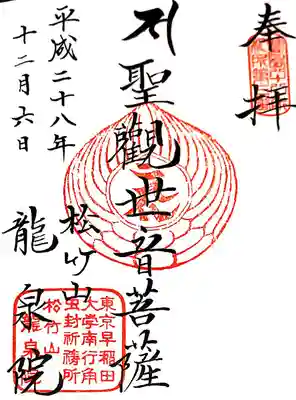 奉拝
聖觀世音菩薩
松竹山
龍泉院
平成二十八年
十二月六日
東京早稲田
大学南行角
虫封祈祷所
松竹山
龍泉院